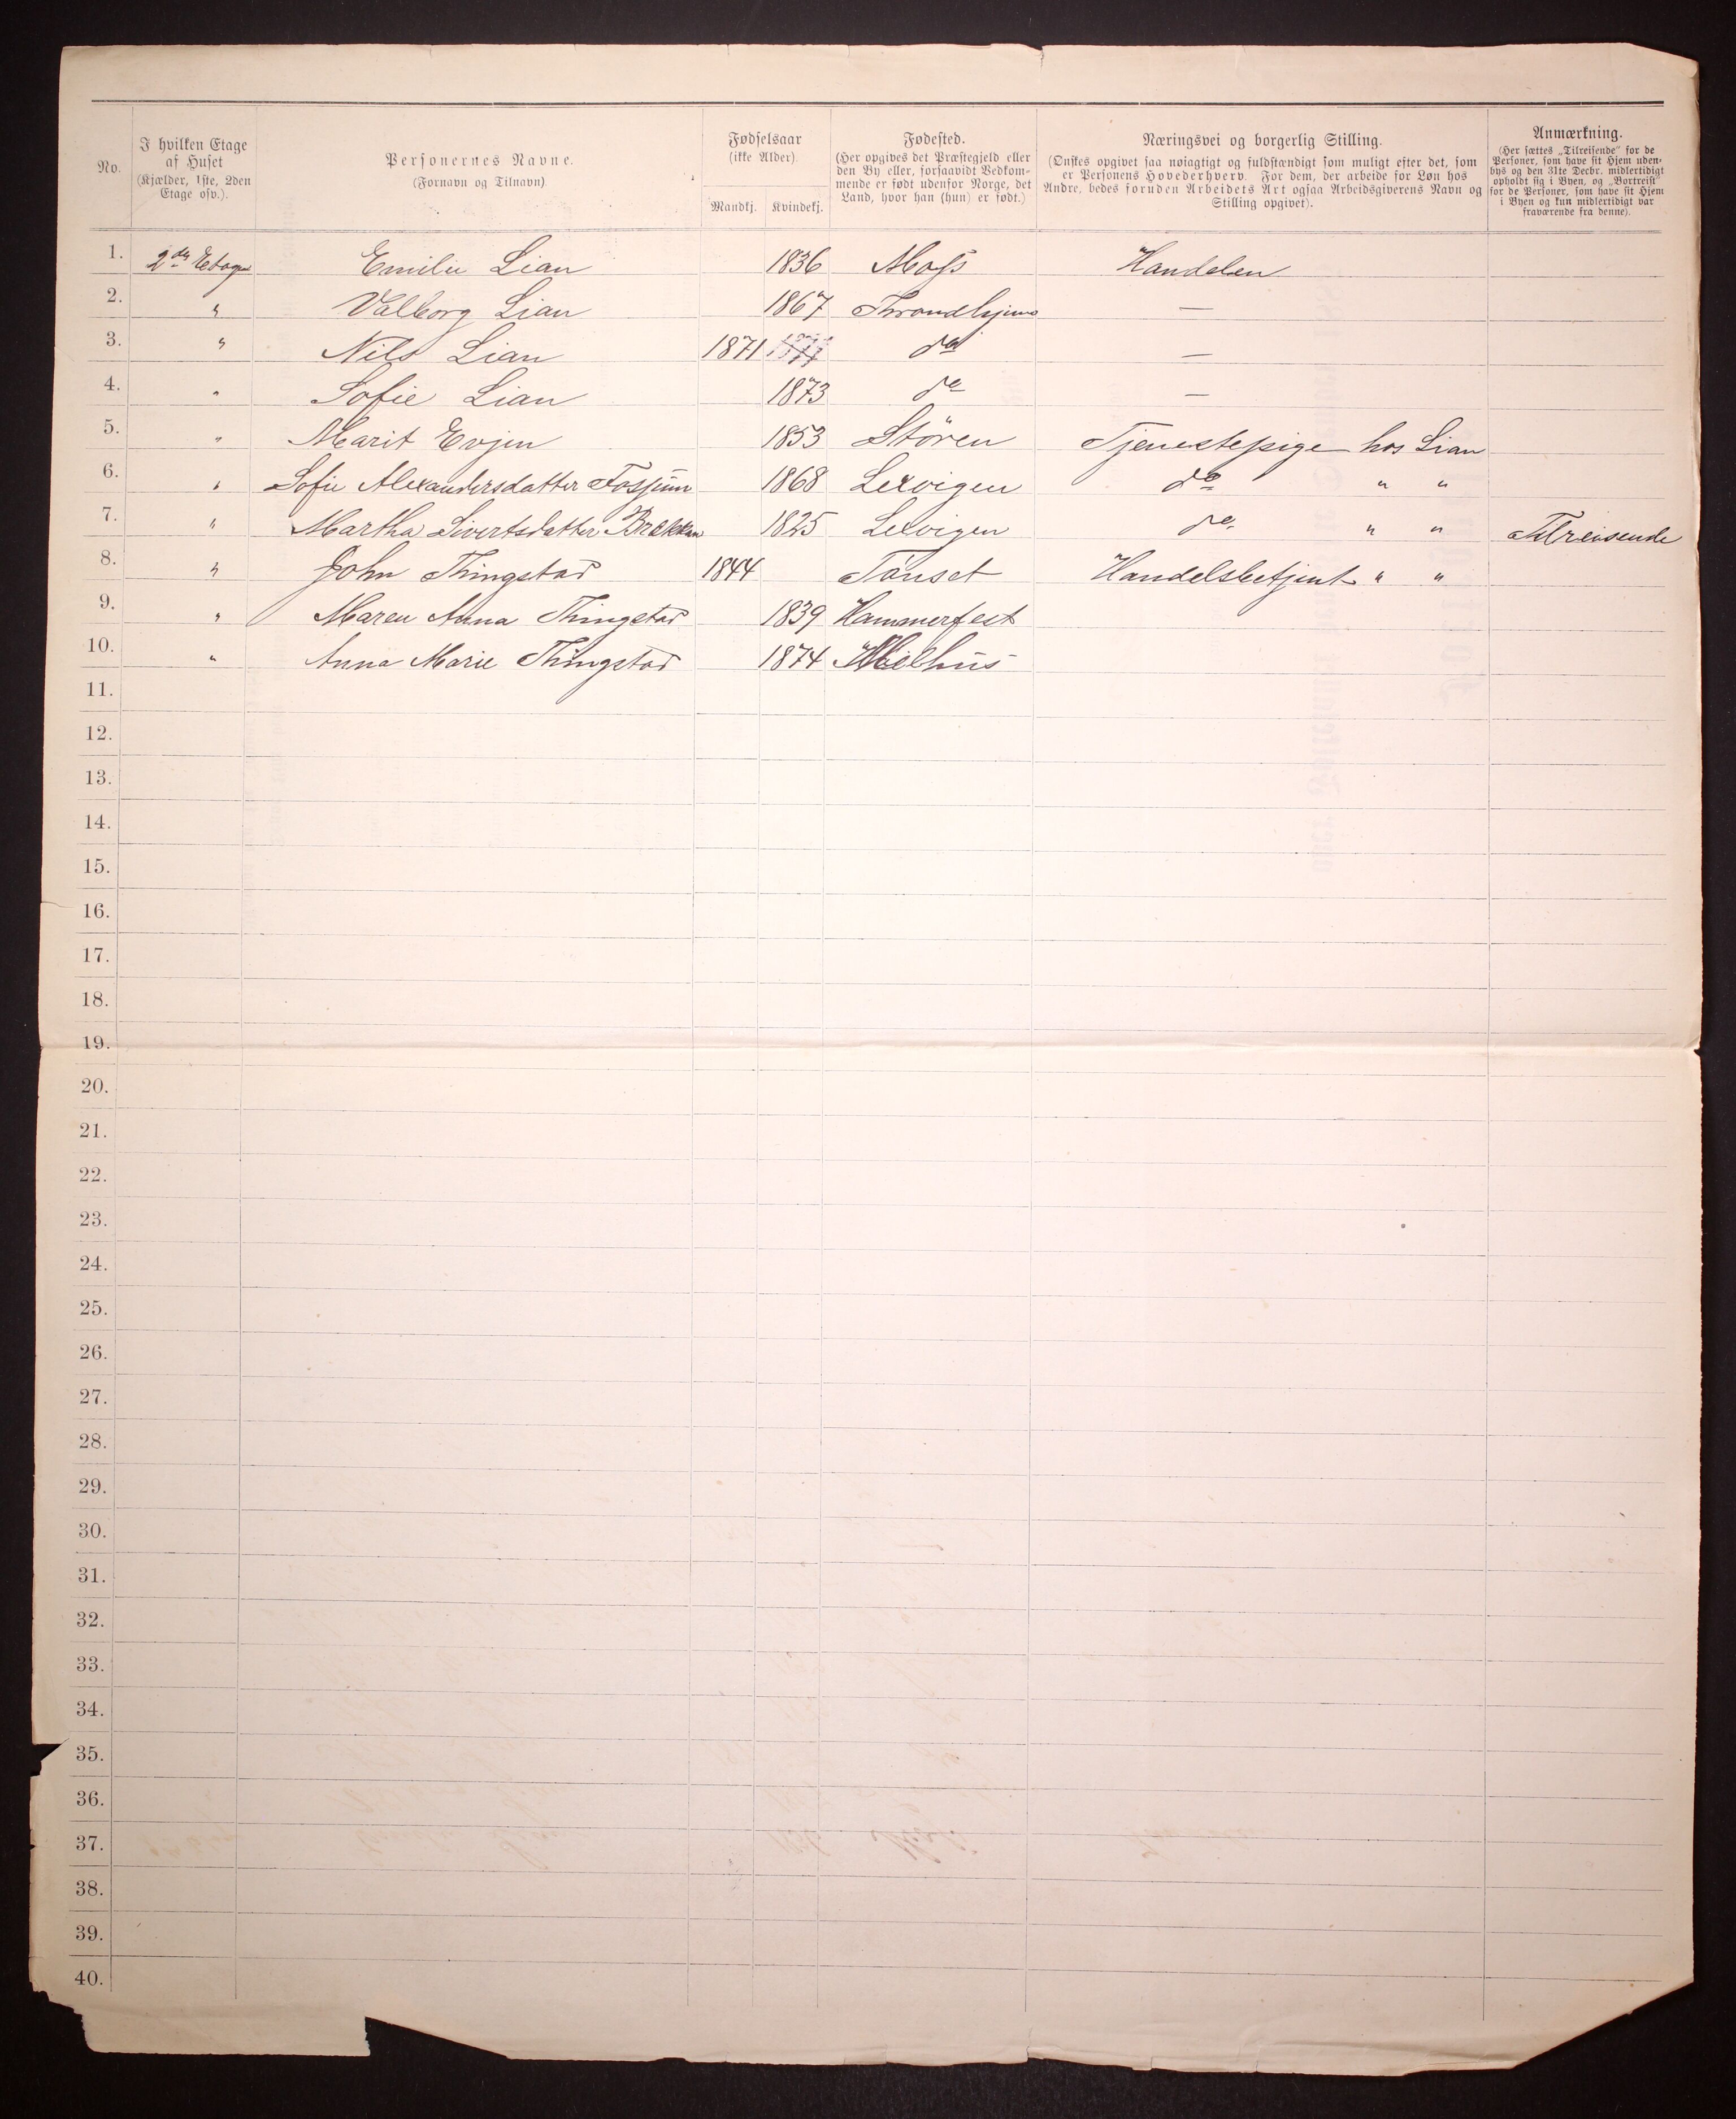 No.
I hvilken Etage af Huset (Kjælder, 1ste, 2den Etage osv.).
Personernes Navne. (Fornavn og Tilnavn)
Fødselsaar (ikke Alder)
Mandkj. Kvindekj.
Fødested.
(Her opgives det Præstegjeld eller
den By eller, forsaavidt Vedkom-
mende er født udenfor Norge, det
Land, hvor han (hun) er født.)
Næringsvei og borgerlig Stilling.
(Ønskes opgivet saa nøiagtigt og fuldstændigt som muligt efter det, som
er Personens Hovederhverv. For dem, der arbeide for Løn hos
Andre, bedes foruden Arbeidets Art ogsaa Arbeidsgiverens Navn og
Stilling opgivet).
Anmærkning.
(Her sættes „Tilreisende" for de
Personer, som have sit Hjem uden-
bys og den 31te Decbr. midlertidigt
opholdt sig i Byen, og „Bortreist"
for de Personer, som have sit Hjem
i Byen og kun midlertidigt var
fraværende fra denne).
1. 2den Etage Emilie Lian 1836 Moss Handelen
2. " Valborg Lian 1867 Throndhjem —
3. " Nils Lian 1871 1871 do —
4. " Sofie Lian 1873 do —
5. " Marit Evjen 1853 Stören Tjenestepige hos Lian
6. " Sofie Alexandersdatter 1868 Lexvigen do " "
7. " Martha Sivertsdatter Brækkan 1825 Lexvigen do " " Tilreisende
8. " John Thingstad 1844 Tönset Handelsbetjent " "
9. " Maren Anna Thingstad 1839 Hammerfest
10. " Anna Marie Thingstad 1874 Melhus
11.
12.
13.
14.
15.
16.
17.
18.
19.
20.
21.
22.
23.
24.
25.
26.
27.
28.
29.
30.
31.
32.
33.
34.
35.
36.
37.
38.
39.
40.